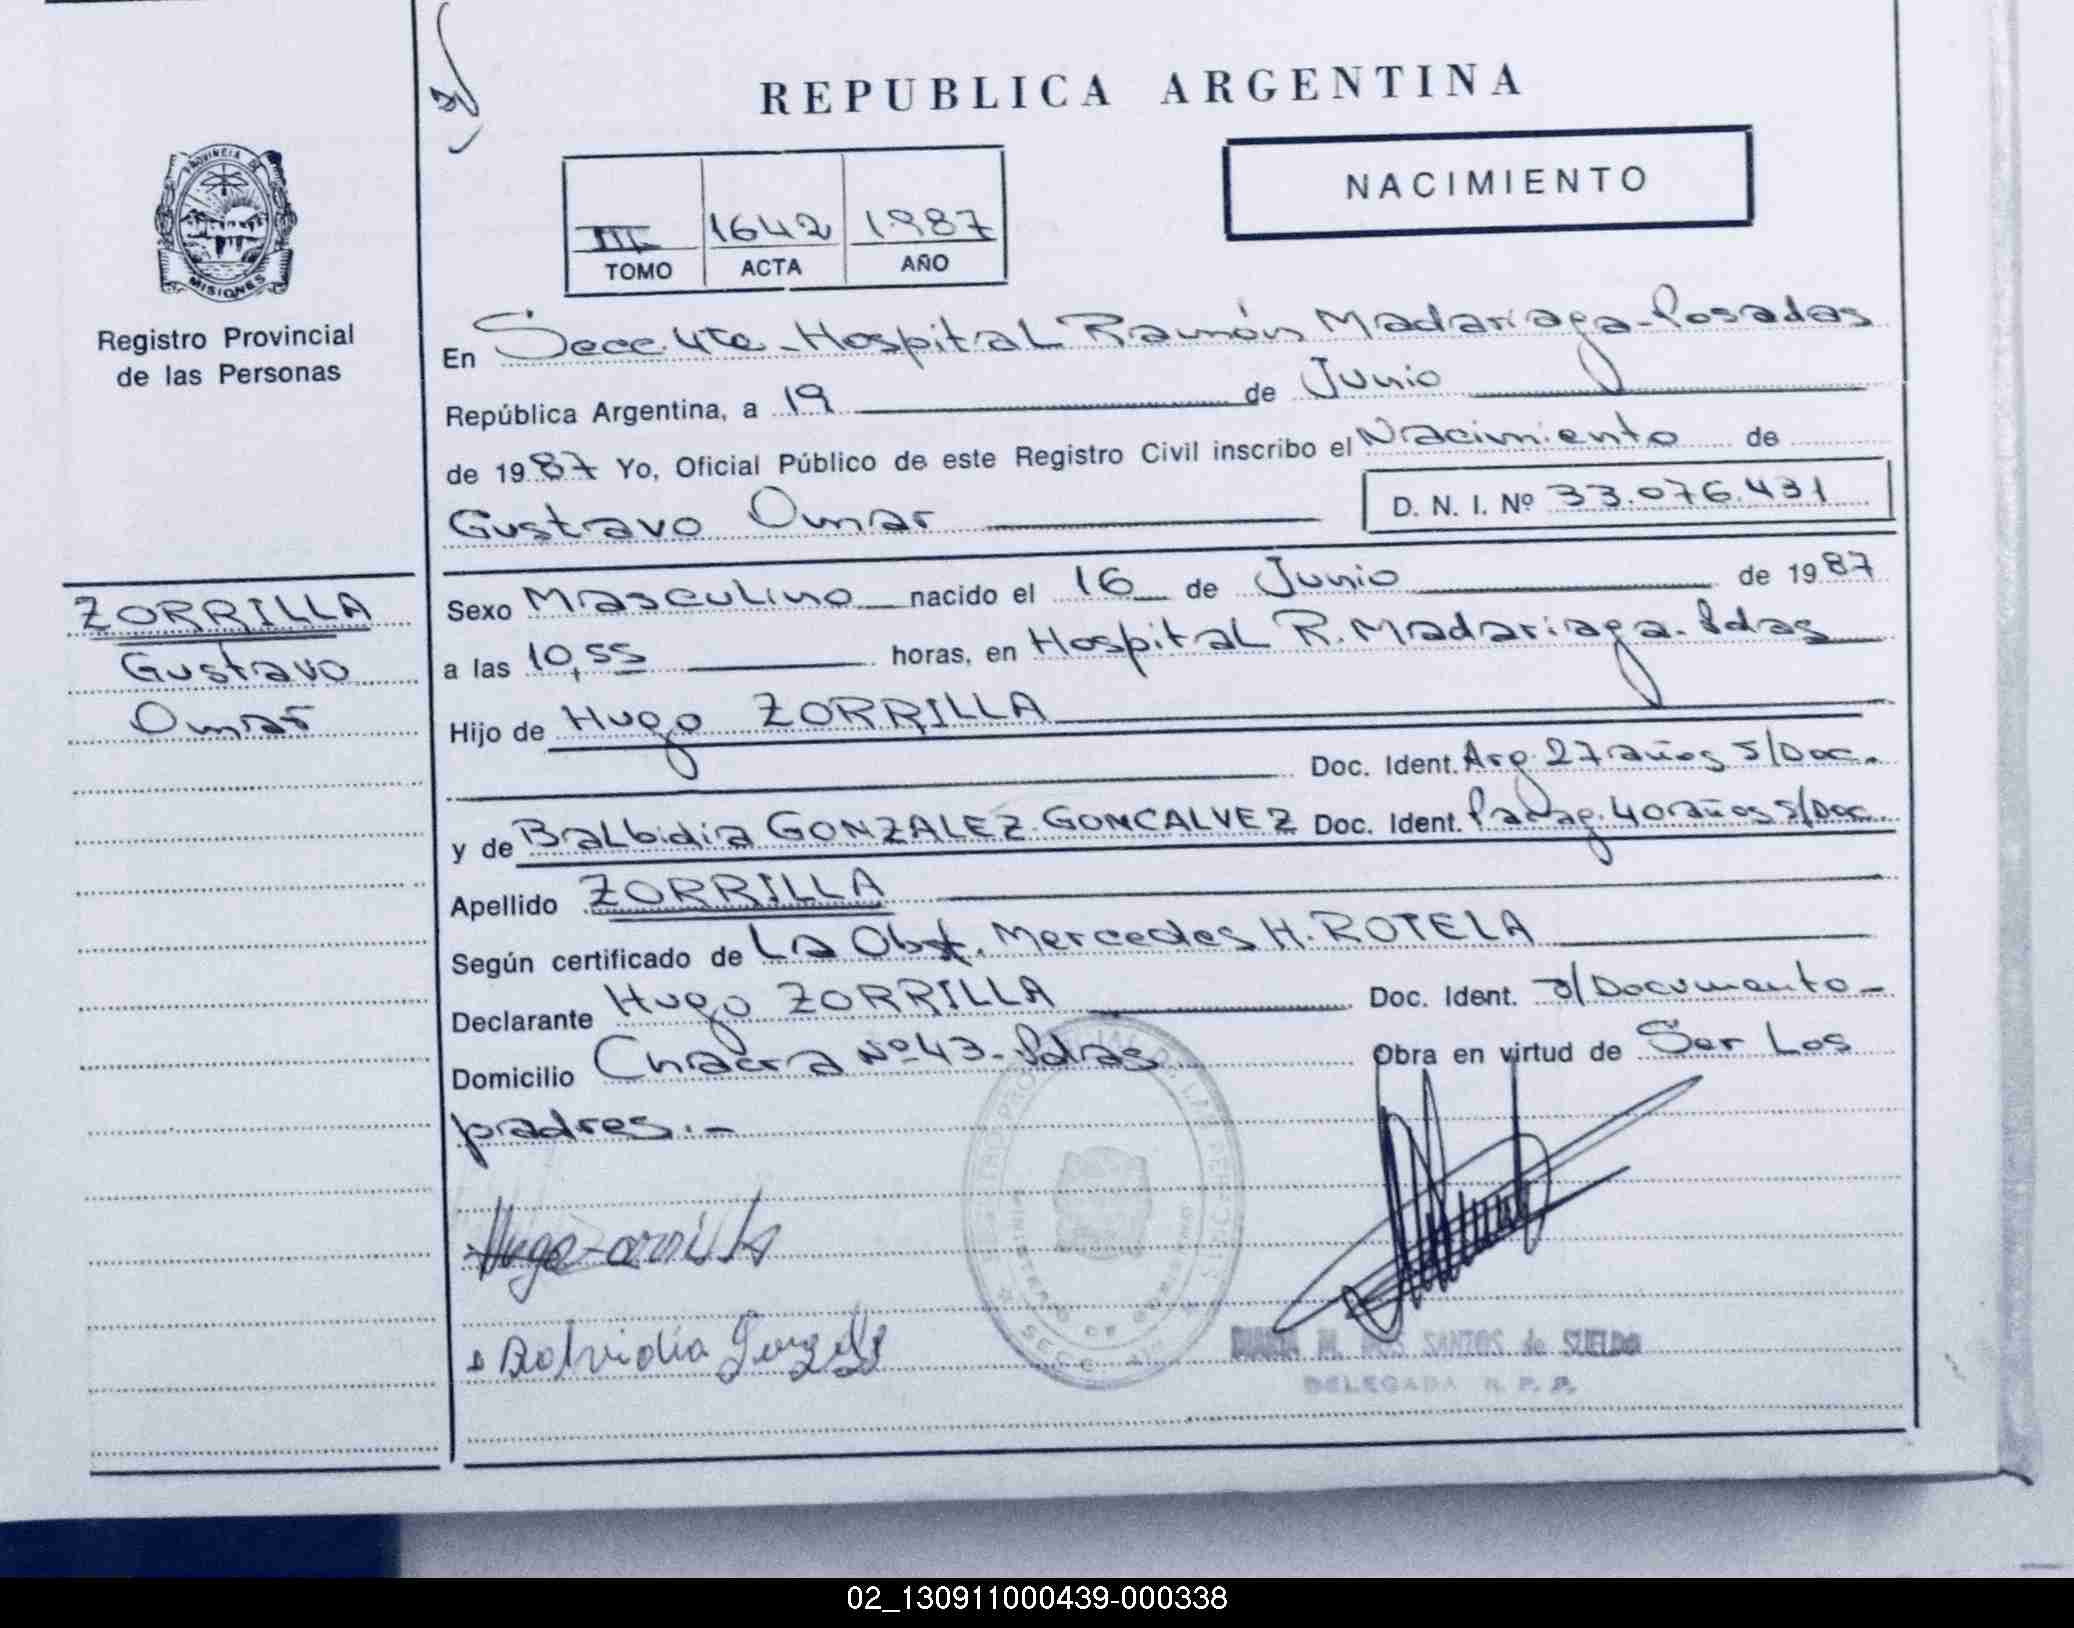 REPUBLICA ARGENTINA
NACIMIENTO
III 1642 1987
TOMO ACTA AÑO
PROVINCIA DE
MISIONES
Registro Provincial
de las Personas
En Secc. 4ta - Hospital Ramón Madariaga - Posadas
República Argentina, a 19 de Junio
de 1987 Yo, Oficial Público de este Registro Civil inscribo el Nacimiento de
Gustavo Omar D. N. I. Nº 33.076.431
ZORRILLA
Gustavo
Omar
Sexo Masculino nacido el 16 de Junio de 1987
a las 10,55 horas, en Hospital R. Madariaga. Pdas
Hijo de Hugo ZORRILLA
Doc. Ident. Arg. 27 años S/Doc.
y de Balbidia GONZALEZ GONCALVEZ Doc. Ident. Parag. 40 años s/Doc.
Apellido ZORRILLA
Según certificado de La Obst. Mercedes H. ROTELA
Declarante Hugo ZORRILLA Doc. Ident. s/Documento -
Domicilio Chacra Nº 43 - Pdas Obra en virtud de Ser Los
padres. -
Hugo Zorrilla
Balvidia
M. DOS SANTOS de SUELDO
DELEGADA R. P. P.
02_130911000439-000338